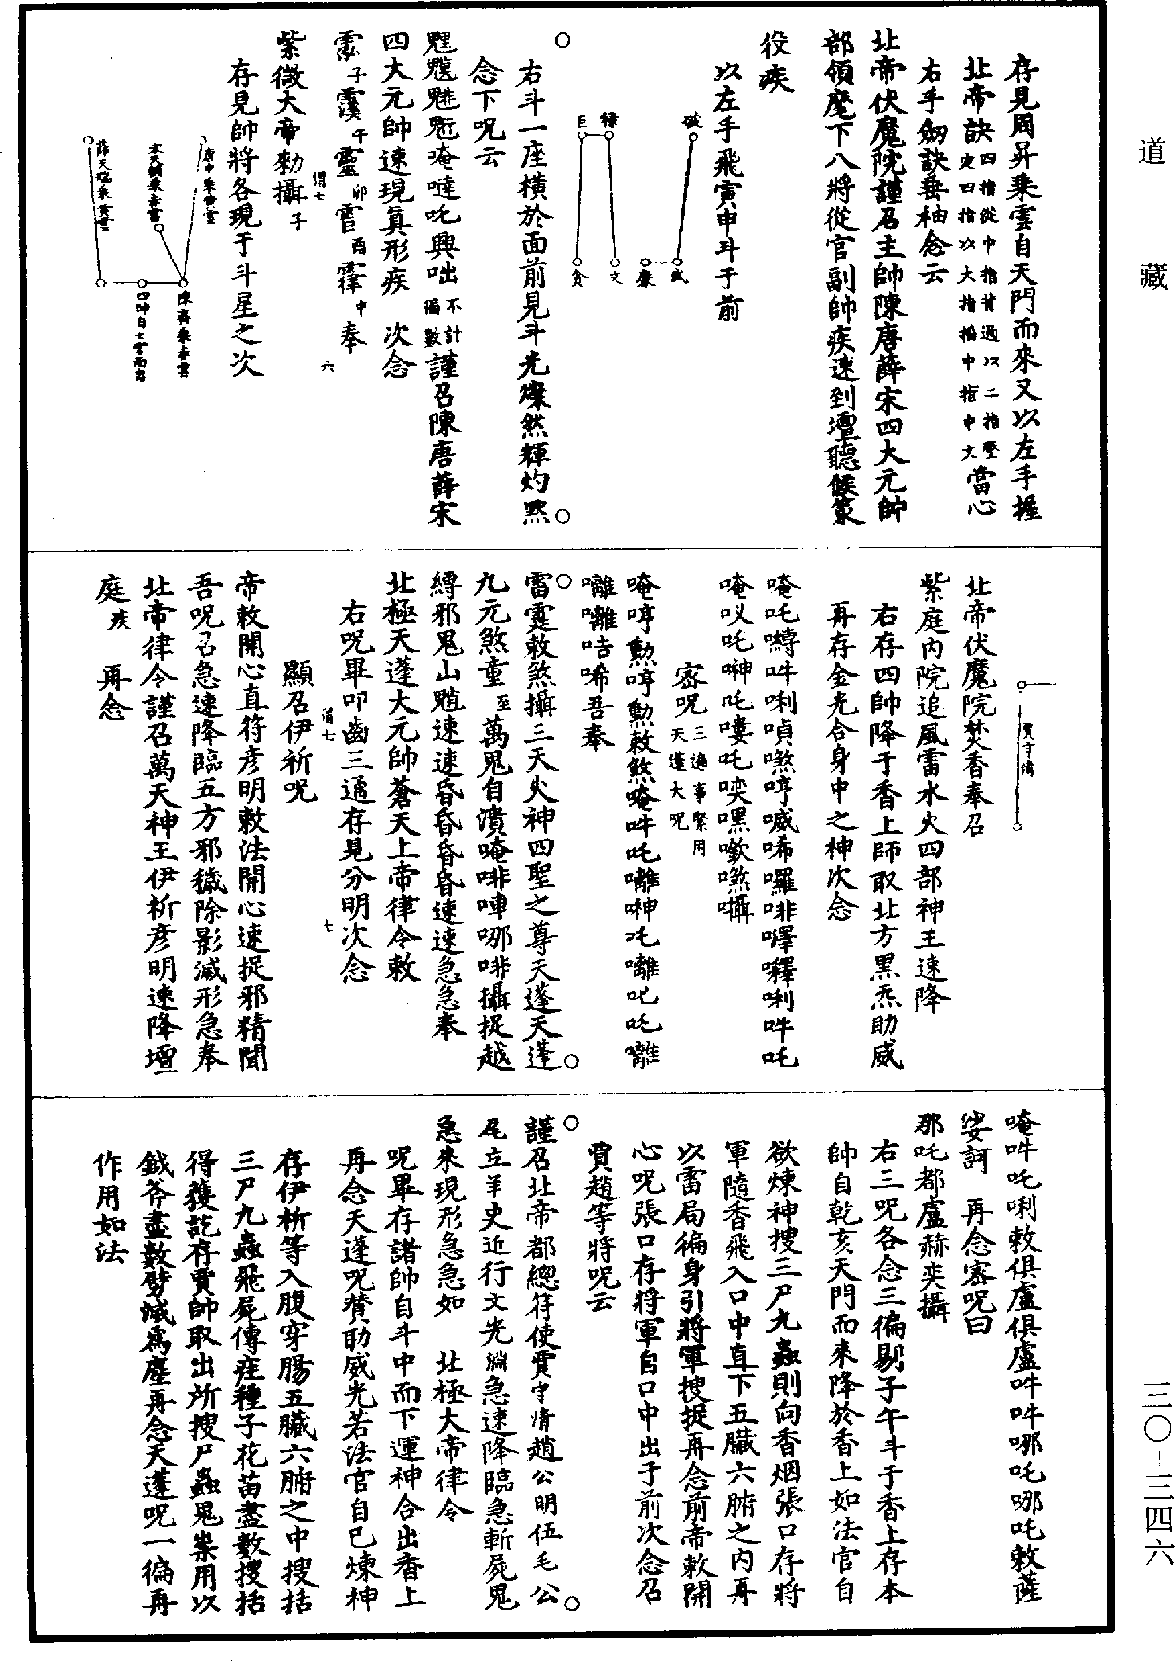 道藏
存見周昇乘雲自天門而來又以左手握
北帝訣四指從中指背過以二指壓定四指以大指掐中指中文當心
右手劒訣垂袖念云
北帝伏魔院謹召主帥陳唐薛宋四大元帥
部領麾下八將從官副帥疾速到壇聽候策
役疾
以左手飛寅申斗于前
破
祿
巨
武
廉
文
貪
右斗一座橫於面前見斗光燦然輝灼默
念下咒云
唵噠吒興咄不計徧數謹召陳唐薛宋
四大元帥速現真形疾 次念
子 午 卯 酉 申奉
紫微大帝勑攝子
存見帥將各現于斗星之次
北帝伏魔院焚香奉召
紫庭內院追風雷水火四部神王速降
右存四帥降于香上師取北方黑炁助威
再存金光合身中之神次念
密咒三遍事緊用天蓬大咒
唵哼勲哼勲敕煞唵吽吒囄呻吒囄吒吒囄
囄囄唶唏吾奉
雷霆敕煞攝三天火神四聖之尊天蓬天蓬
九元煞童至萬鬼自潰唵啡啴哪啡攝捉越
縛邪鬼山魈速速昏昏昏昏速速急急奉
北極天蓬大元帥蒼天上帝律令敕
右咒畢叩齒三通存見分明次念
顯召伊祈咒
帝敕開心直符彦明敕法開心速捉邪精聞
吾咒召急速降臨五方邪穢除影滅形急奉
北帝律令謹召萬天神王伊祈彦明速降壇
庭疾 再念
唵吽吒唎敕俱盧俱盧吽吽哪吒哪吒敕薩
娑訶 再念密咒曰
那吒都盧赫奕攝
右三咒各念三徧剔子午斗于香上存本
帥自乾亥天門而來降於香上如法官自
欲煉神搜三尸九蟲則向香烟張口存將
軍隨香飛入口中直下五臟六腑之内再
以雷局徧身引將軍搜捉再念前帝敕開
心咒張口存將軍自口中出于前次念召
賈趙等將咒云
謹召北帝都總符使賈守情趙公明伍毛公
尾立羊史近行文光澥急速降臨急斬屍鬼
急來現形急急如 北極大帝律令
咒畢存諸帥自斗中而下運神合出香上
再念天蓬咒賛助威光若法官自己煉神
存伊祈等入腹穿腸五臟六腑之中搜括
三尸九蟲飛屍傳疰種子花苗盡數搜括
得獲訖存賈帥取出所搜尸蟲鬼祟用以
鉞斧盡數劈滅爲塵再念天蓬咒一徧再
作用如法
三〇-三四六